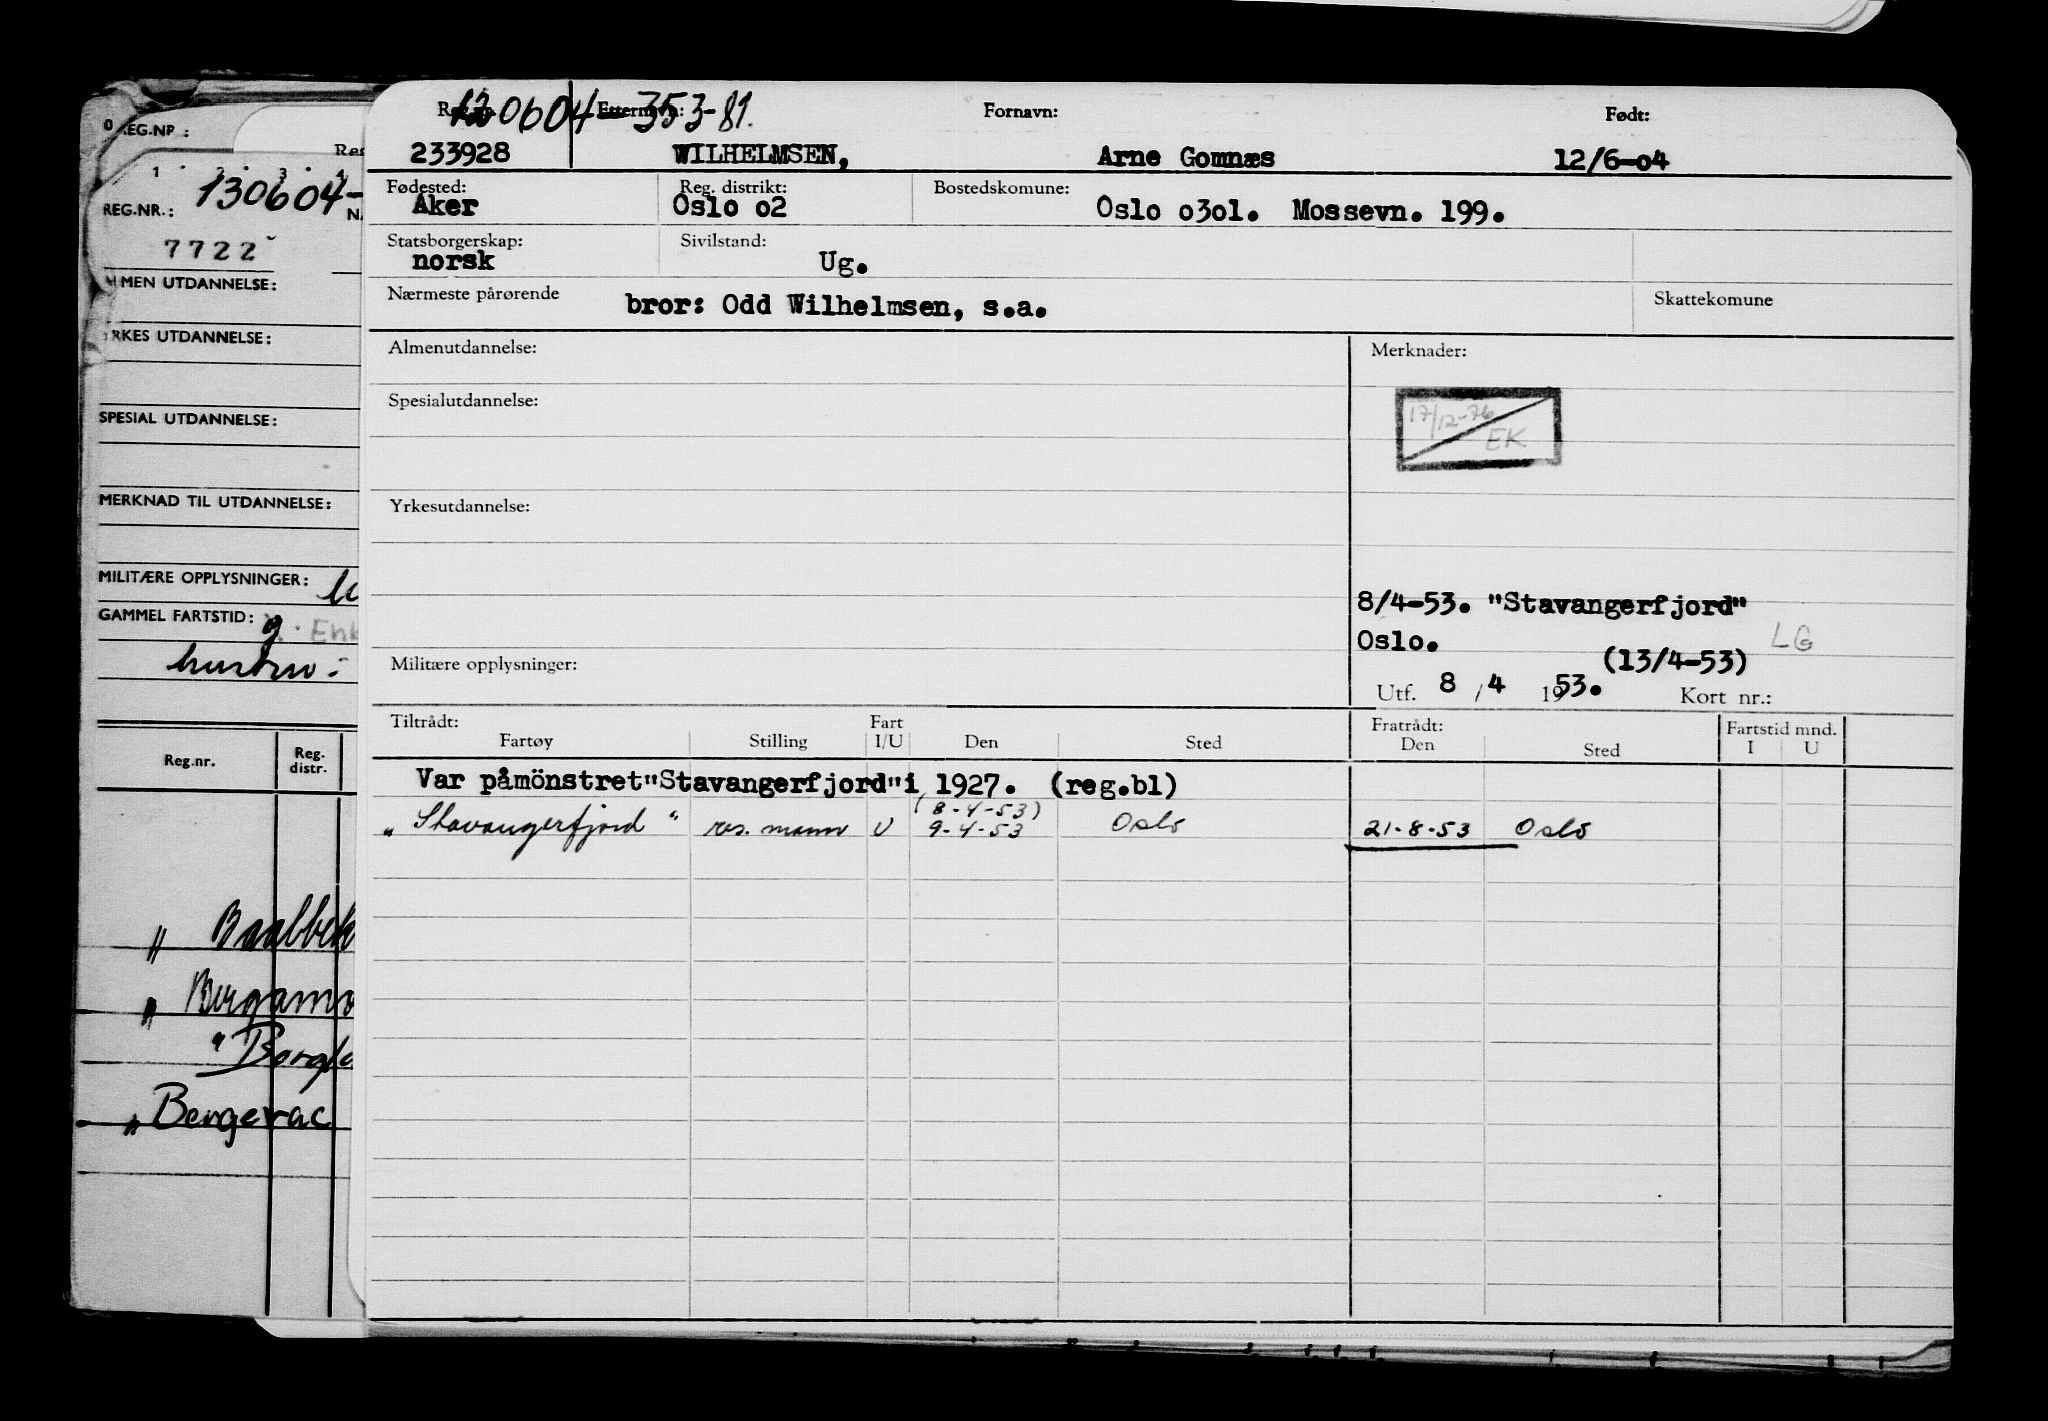 Reg.nr. Etternavn: Fornavn: Født:
120604-353-81.
233928 WILHELMSEN, Arne Gomnæs 12/6-o4
Fødested: Reg. distrikt: Bostedskomune:
Aker Oslo o2 Oslo o3o1. Mossevn. 199.
Statsborgerskap: Sivilstand:
norsk Ug.
Nærmeste pårørende bror: Odd Wilhelmsen, s.a. Skattekomune
Almenutdannelse: Merknader:
17/12-76
EK
Spesialutdannelse:
Yrkesutdannelse:
8/4-53. "Stavangerfjord"
Oslo. LG
(13/4-53)
Militære opplysninger:
Utf. 8 / 4 1953. Kort nr.:
Tiltrådt: Fart Fratrådt: Fartstid mnd.
Fartøy Stilling I/U Den Sted Den Sted I U
Var påmönstret"Stavangerfjord"i 1927. (reg.bl)
(8-4-53)
"Stavangerfjord" res. mann U 9-4-53 Oslo 21-8-53 Oslo
REG.NR:
1 2 3 4
REG.NR.: 130604-
7722
ALMEN UTDANNELSE:
YRKES UTDANNELSE:
SPESIAL UTDANNELSE:
MERKNAD TIL UTDANNELSE:
MILITÆRE OPPLYSNINGER:
GAMMEL FARTSTID:
hustru:
Reg.nr. Reg. distr.
" Baalbek
" Bergamo
" Borgla
" Bergerac